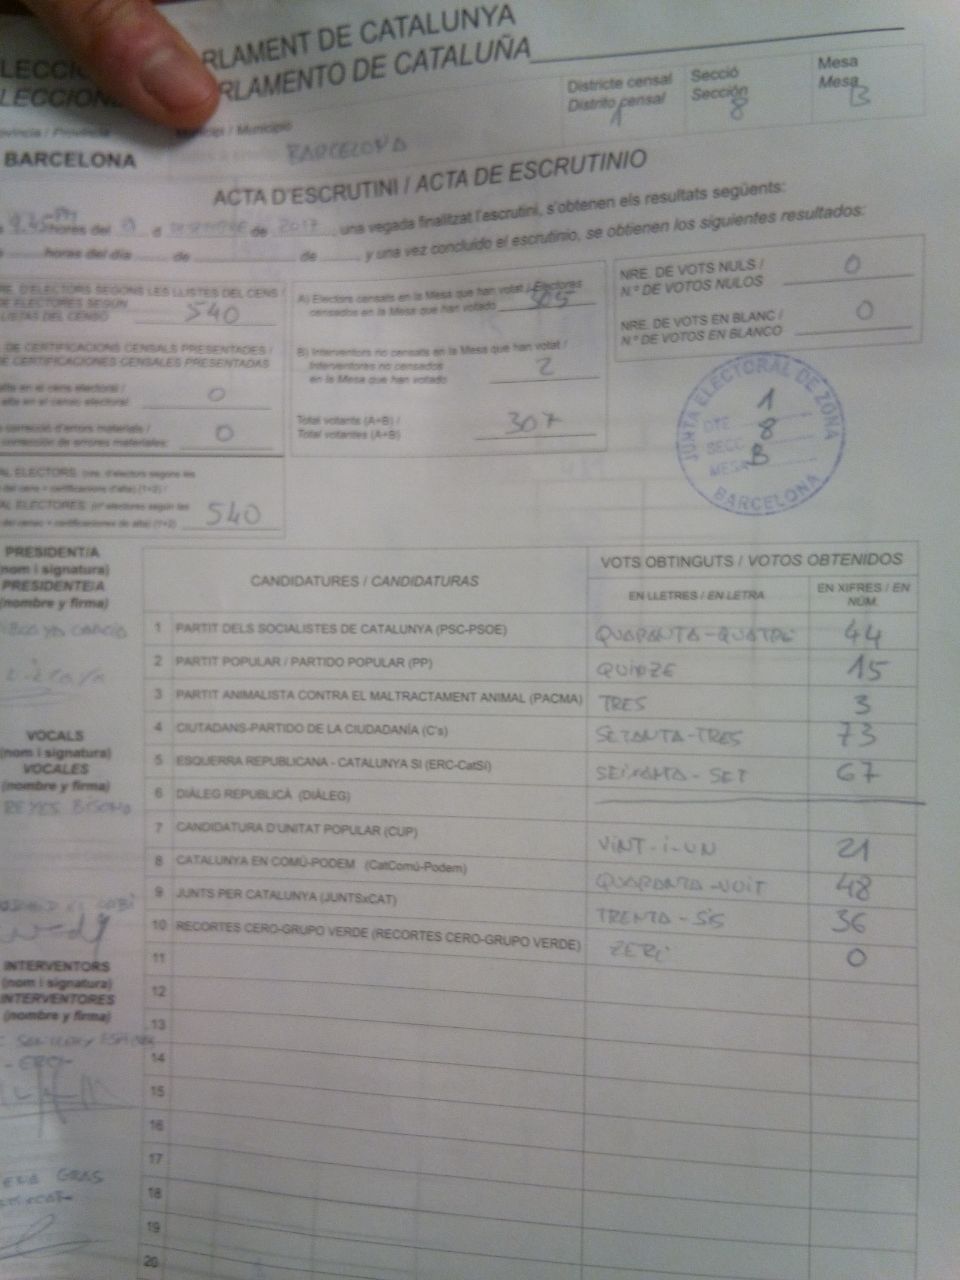 PARLAMENT DE CATALUNYA
PARLAMENTO DE CATALUÑA
Districte censal
Distrito censal
1
Secció
Sección
8
Mesa
Mesa
B
Municipi / Municipio
BARCELONA
BARCELONA
ACTA D'ESCRUTINI / ACTA DE ESCRUTINIO
hores del de 2017, una vegada finalitzat l'escrutini, s'obtenen els resultats següents:
horas del día de de y una vez concluido el escrutinio, se obtienen los siguientes resultados:
D'ELECTORS SEGONS LES LLISTES DEL CENS /
ELECTORES SEGÚN
LISTAS DEL CENSO 540
DE CERTIFICACIONS CENSALS PRESENTADES /
DE CERTIFICACIONES CENSALES PRESENTADAS
en el cens electoral /
en el censo electoral 0
correcció d'errors materials /
corrección de errores materiales: 0
ELECTORS: (nre. d'electors segons les
del cens + certificacions d'alta) (1+2) /
ELECTORES: (nº electores según las
del censo + certificaciones de alta) (1+2) 540
A) Electors censats en la Mesa que han votat / Electores
censados en la Mesa que han votado 305
B) Interventors no censats en la Mesa que han votat /
Interventores no censados
en la Mesa que han votado 2
Total votants (A+B) /
Total votantes (A+B) 307
NRE. DE VOTS NULS /
N.º DE VOTOS NULOS 0
NRE. DE VOTS EN BLANC /
N.º DE VOTOS EN BLANCO 0
JUNTA ELECTORAL DE ZONA
DTE. 1
SECC. 8
MESA B
BARCELONA
PRESIDENT/A
(nom i signatura)
PRESIDENTE/A
(nombre y firma)
VOCALS
(nom i signatura)
VOCALES
(nombre y firma)
REYES
INTERVENTORS
(nom i signatura)
INTERVENTORES
(nombre y firma)
GRAS
CANDIDATURES / CANDIDATURAS
VOTS OBTINGUTS / VOTOS OBTENIDOS
EN LLETRES / EN LETRA
EN XIFRES / EN
NÚM.
1 PARTIT DELS SOCIALISTES DE CATALUNYA (PSC-PSOE) QUARANTA-QUATRE 44
2 PARTIT POPULAR / PARTIDO POPULAR (PP) QUINZE 15
3 PARTIT ANIMALISTA CONTRA EL MALTRACTAMENT ANIMAL (PACMA) TRES 3
4 CIUTADANS-PARTIDO DE LA CIUDADANÍA (C's) SETANTA-TRES 73
5 ESQUERRA REPUBLICANA - CATALUNYA SI (ERC-CatSí) SEIXANTA-SET 67
6 DIÀLEG REPUBLICÀ (DIÀLEG)
7 CANDIDATURA D'UNITAT POPULAR (CUP) VINT-I-UN 21
8 CATALUNYA EN COMÚ-PODEM (CatComú-Podem) QUARANTA-VUIT 48
9 JUNTS PER CATALUNYA (JUNTSxCAT) TRENTA-SIS 36
10 RECORTES CERO-GRUPO VERDE (RECORTES CERO-GRUPO VERDE) ZERO 0
11
12
13
14
15
16
17
18
19
20